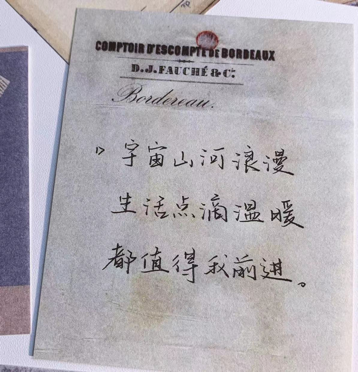 COMPTOIR D'ESCOMPTE DE BORDEAUX
D.J. FAUCHÉ & C.
Bordereau.
宇宙山河浪漫
生活点滴温暖
都值得我前进。